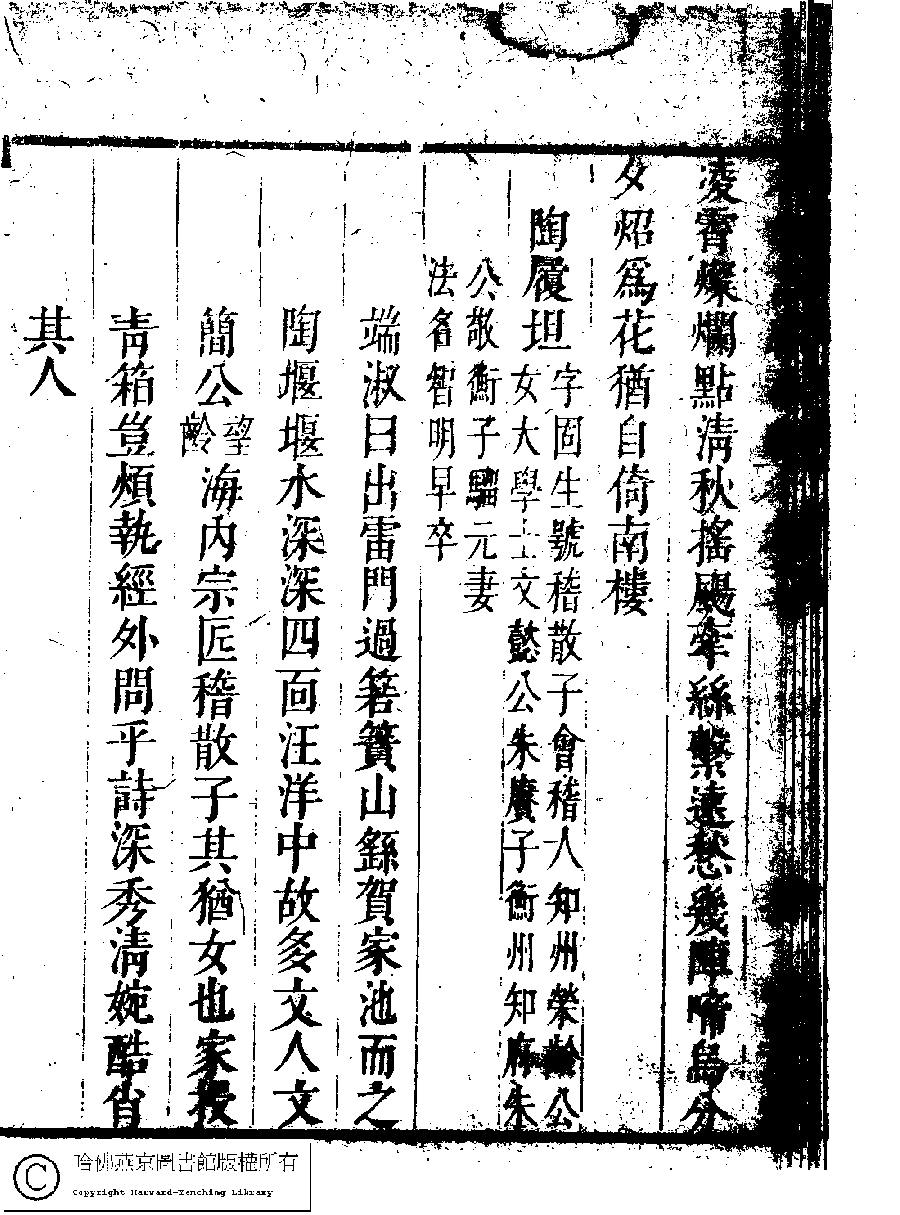 凌霄燦爛點清秋搖颺牽絲繫遠愁幾陣啼烏分
女炤爲花猶自倚南樓
陶履坦
字固生號稽散子會稽人知州榮齡公
女大學士文懿公朱賡子衡州知府朱
公敬衡子騮元妻
法名智明早卒
端淑曰出雷門過箬簣山繇賀家池而之
陶堰堰水深深四面汪洋中故多文人文
簡公望齡海內宗匠稽散子其猶女也家授
靑箱豈煩執經外問乎詩深秀清婉酷肖
其人
哈佛燕京圖書館版權所有
Copyright Harvard-Yenching Library